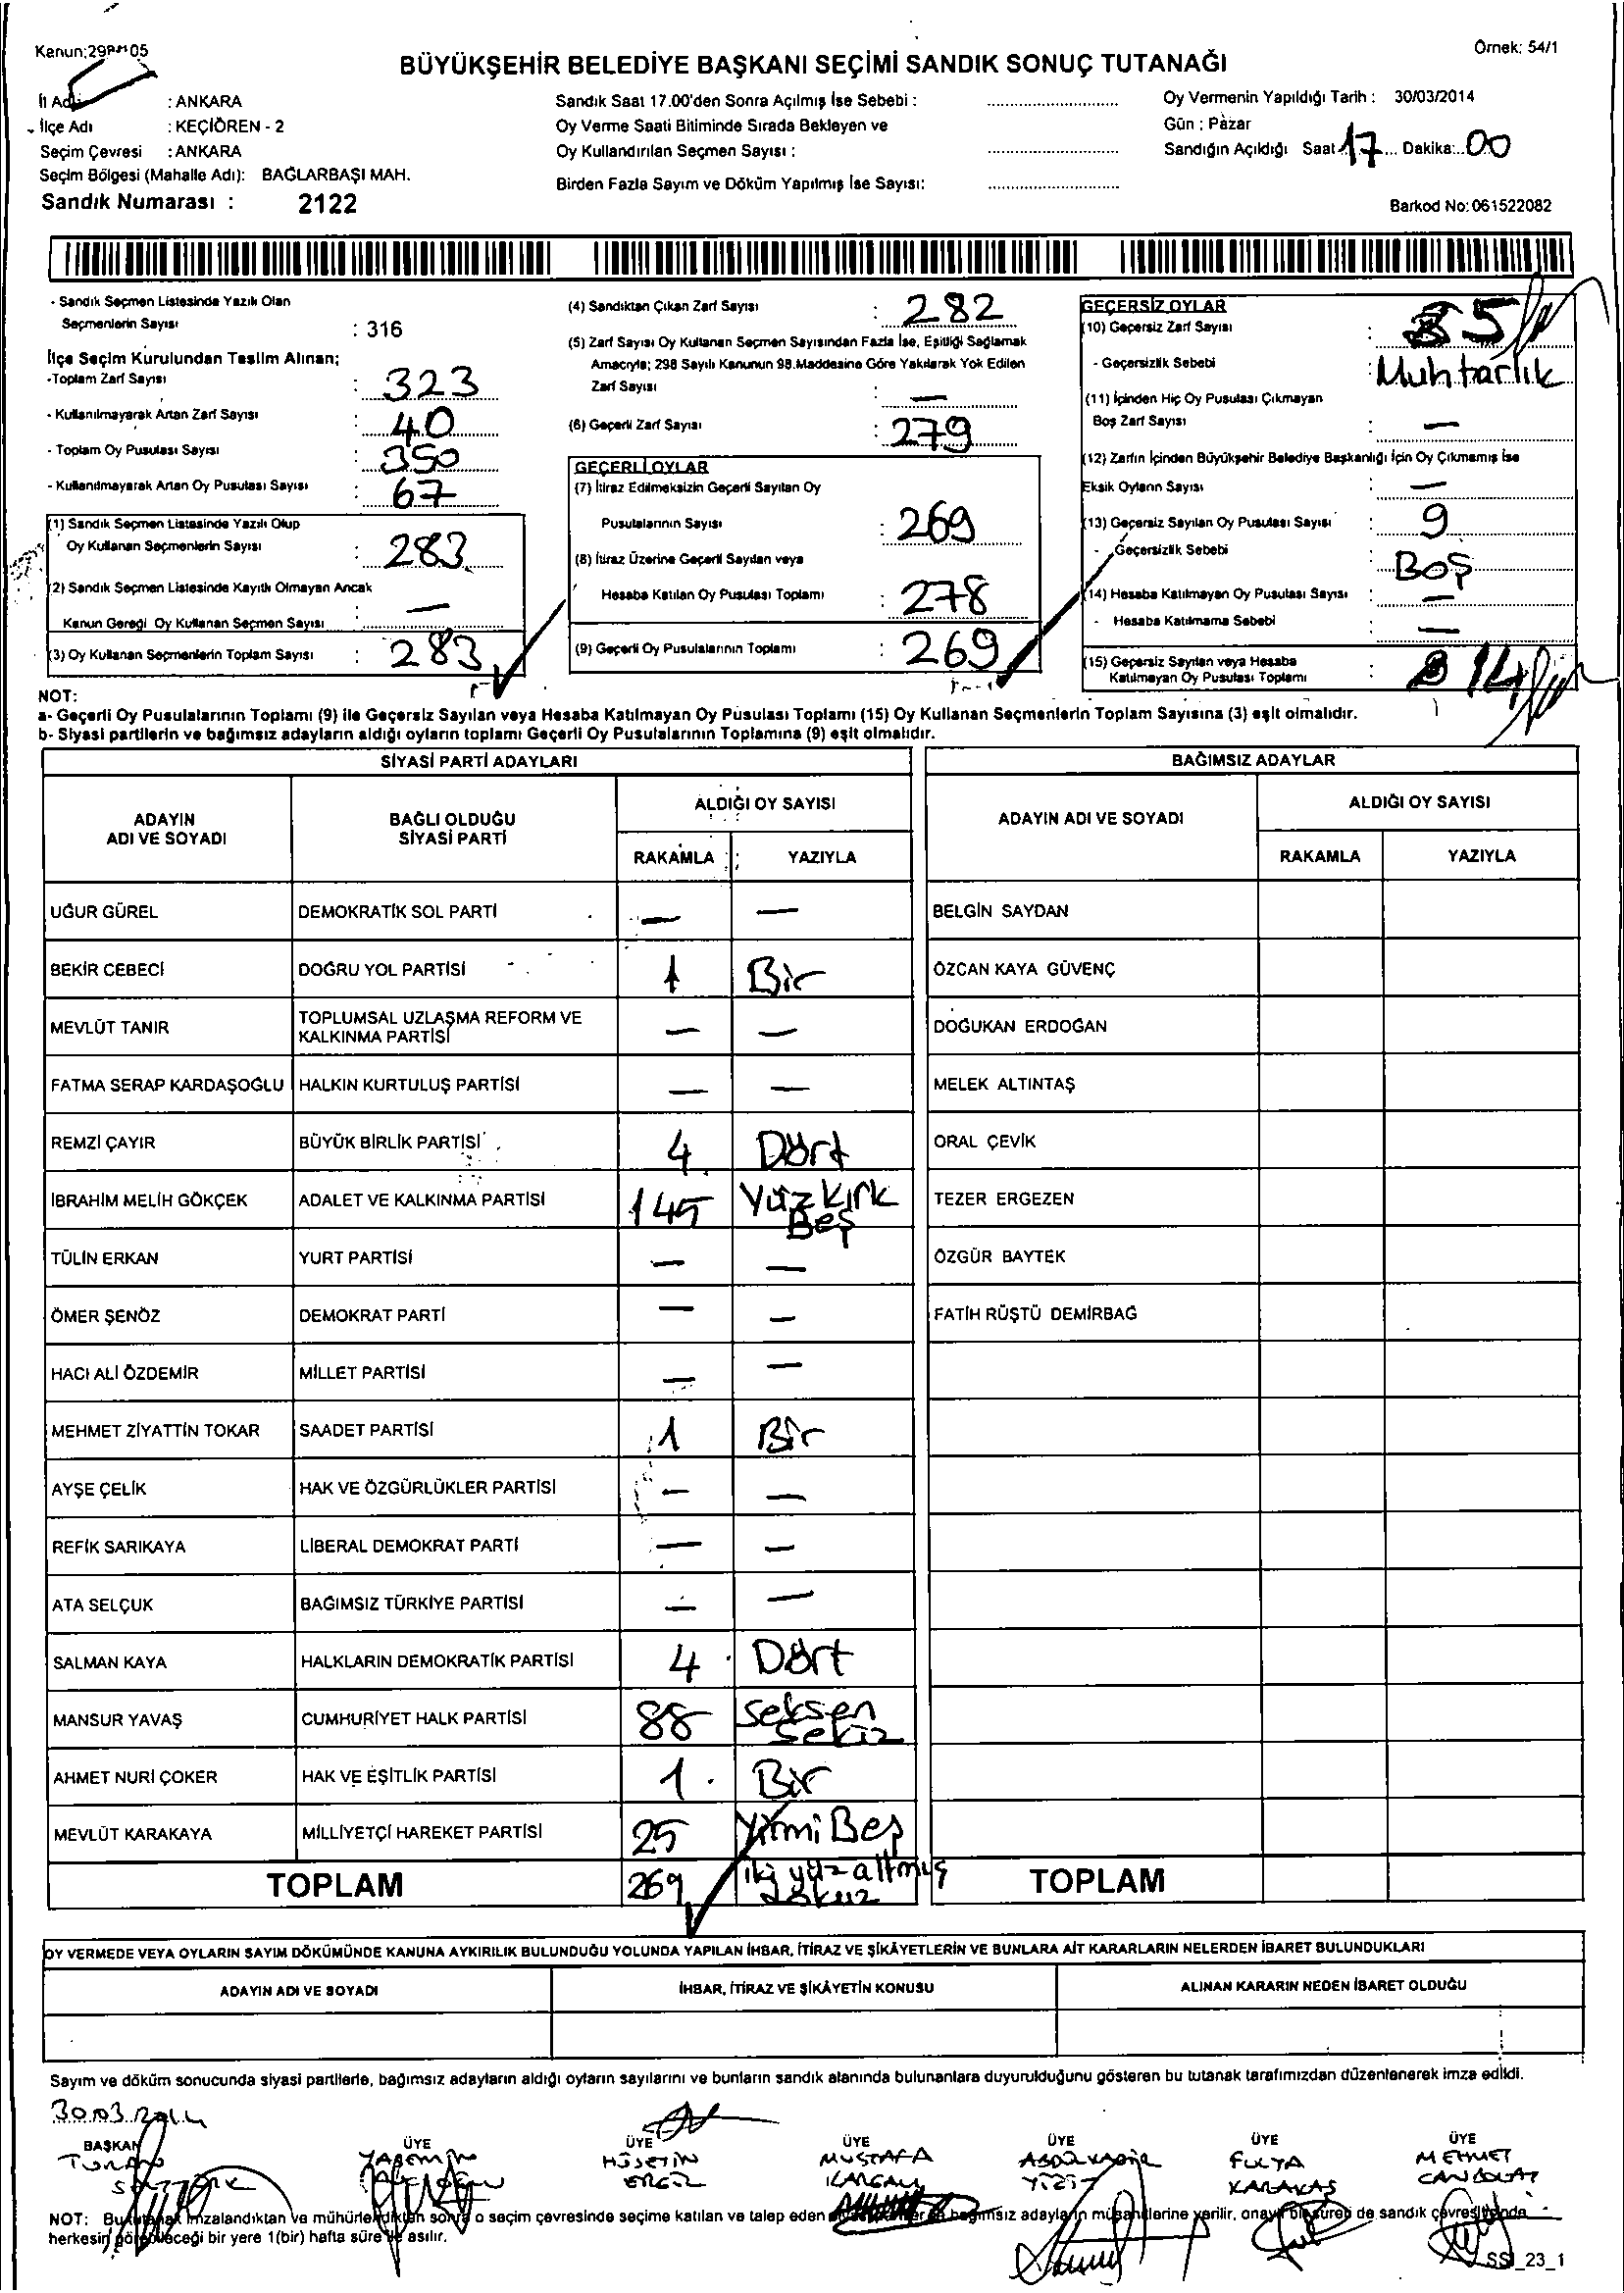 Kanun:298
Örnek: 54/1
BÜYÜKŞEHİR BELEDİYE BAŞKANI SEÇİMİ SANDIK SONUÇ TUTANAĞI
İl Adı : ANKARA
İlçe Adı : KEÇİÖREN - 2
Seçim Çevresi : ANKARA
Seçim Bölgesi (Mahalle Adı): BAĞLARBAŞI MAH.
Sandık Numarası : 2122
Sandık Saat 17.00'den Sonra Açılmış İse Sebebi :
Oy Verme Saati Bitiminde Sırada Bekleyen ve
Oy Kullandırılan Seçmen Sayısı :
Birden Fazla Sayım ve Döküm Yapılmış İse Sayısı:
Oy Vermenin Yapıldığı Tarih : 30/03/2014
Gün : Pazar
Sandığın Açıldığı Saat 17 Dakika: 00
Barkod No:061522082
- Sandık Seçmen Listesinde Yazılı Olan
Seçmenlerin Sayısı : 316
İlçe Seçim Kurulundan Teslim Alınan;
-Toplam Zarf Sayısı : 323
- Kullanılmayarak Artan Zarf Sayısı : 40
- Toplam Oy Pusulası Sayısı : 350
- Kullanılmayarak Artan Oy Pusulası Sayısı : 67
(1) Sandık Seçmen Listesinde Yazılı Olup
Oy Kullanan Seçmenlerin Sayısı : 283
(2) Sandık Seçmen Listesinde Kayıtlı Olmayan Ancak
Kanun Gereği Oy Kullanan Seçmen Sayısı : —
(3) Oy Kullanan Seçmenlerin Toplam Sayısı : 283
(4) Sandıktan Çıkan Zarf Sayısı : 282
(5) Zarf Sayısı Oy Kullanan Seçmen Sayısından Fazla İse, Eşitliği Sağlamak
Amacıyla; 298 Sayılı Kanunun 98.Maddesine Göre Yakılarak Yok Edilen
Zarf Sayısı : —
(6) Geçerli Zarf Sayısı : 279
GEÇERLİ OYLAR
(7) İtiraz Edilmeksizin Geçerli Sayılan Oy
Pusulalarının Sayısı : 269
(8) İtiraz Üzerine Geçerli Sayılan veya
Hesaba Katılan Oy Pusulası Toplamı : 278
(9) Geçerli Oy Pusulalarının Toplamı : 269
GEÇERSİZ OYLAR
(10) Geçersiz Zarf Sayısı : 5
- Geçersizlik Sebebi : Muhtarlık
(11) İçinden Hiç Oy Pusulası Çıkmayan
Boş Zarf Sayısı : —
(12) Zarfın İçinden Büyükşehir Belediye Başkanlığı İçin Oy Çıkmamış İse
Eksik Oyların Sayısı : —
(13) Geçersiz Sayılan Oy Pusulası Sayısı : 9
- Geçersizlik Sebebi : Boş
(14) Hesaba Katılmayan Oy Pusulası Sayısı : —
- Hesaba Katılmama Sebebi : —
(15) Geçersiz Sayılan veya Hesaba
Katılmayan Oy Pusulası Toplamı : 14
NOT:
a- Geçerli Oy Pusulalarının Toplamı (9) ile Geçersiz Sayılan veya Hesaba Katılmayan Oy Pusulası Toplamı (15) Oy Kullanan Seçmenlerin Toplam Sayısına (3) eşit olmalıdır.
b- Siyasi partilerin ve bağımsız adayların aldığı oyların toplamı Geçerli Oy Pusulalarının Toplamına (9) eşit olmalıdır.
SİYASİ PARTİ ADAYLARI
ADAYIN ADI VE SOYADI BAĞLI OLDUĞU SİYASİ PARTİ ALDIĞI OY SAYISI
RAKAMLA YAZIYLA
UĞUR GÜREL DEMOKRATİK SOL PARTİ — —
BEKİR CEBECİ DOĞRU YOL PARTİSİ 1 Bir
MEVLÜT TANIR TOPLUMSAL UZLAŞMA REFORM VE KALKINMA PARTİSİ — —
FATMA SERAP KARDAŞOĞLU HALKIN KURTULUŞ PARTİSİ — —
REMZİ ÇAYIR BÜYÜK BİRLİK PARTİSİ 4 Dört
İBRAHİM MELİH GÖKÇEK ADALET VE KALKINMA PARTİSİ 145 Yüz kırk Beş
TÜLİN ERKAN YURT PARTİSİ — —
ÖMER ŞENÖZ DEMOKRAT PARTİ — —
HACI ALİ ÖZDEMİR MİLLET PARTİSİ — —
MEHMET ZİYATTİN TOKAR SAADET PARTİSİ 1 Bir
AYŞE ÇELİK HAK VE ÖZGÜRLÜKLER PARTİSİ — —
REFİK SARIKAYA LİBERAL DEMOKRAT PARTİ — —
ATA SELÇUK BAĞIMSIZ TÜRKİYE PARTİSİ — —
SALMAN KAYA HALKLARIN DEMOKRATİK PARTİSİ 4 Dört
MANSUR YAVAŞ CUMHURİYET HALK PARTİSİ 88 Seksen Sekiz
AHMET NURİ ÇOKER HAK VE EŞİTLİK PARTİSİ 1 Bir
MEVLÜT KARAKAYA MİLLİYETÇİ HAREKET PARTİSİ 25 Yirmi Beş
TOPLAM 269 iki yüz altmış dokuz
BAĞIMSIZ ADAYLAR
ADAYIN ADI VE SOYADI ALDIĞI OY SAYISI
RAKAMLA YAZIYLA
BELGİN SAYDAN
ÖZCAN KAYA GÜVENÇ
DOĞUKAN ERDOĞAN
MELEK ALTINTAŞ
ORAL ÇEVİK
TEZER ERGEZEN
ÖZGÜR BAYTEK
FATİH RÜŞTÜ DEMİRBAĞ
TOPLAM
OY VERMEDE VEYA OYLARIN SAYIM DÖKÜMÜNDE KANUNA AYKIRILIK BULUNDUĞU YOLUNDA YAPILAN İHBAR, İTİRAZ VE ŞİKÂYETLERİN VE BUNLARA AİT KARARLARIN NELERDEN İBARET BULUNDUKLARI
ADAYIN ADI VE SOYADI İHBAR, İTİRAZ VE ŞİKÂYETİN KONUSU ALINAN KARARIN NEDEN İBARET OLDUĞU
Sayım ve döküm sonucunda siyasi partilerle, bağımsız adayların aldığı oyların sayılarını ve bunların sandık alanında bulunanlara duyurulduğunu gösteren bu tutanak tarafımızdan düzenlenerek imza edildi.
30.03.2014
BAŞKAN ÜYE ÜYE ÜYE ÜYE ÜYE ÜYE
YASEMİN HÜSEYİN MUSTAFA ABDULKADİR FULYA MEHMET
YİĞİT KARAKAŞ CANBOLAT
NOT: Bu tutanak imzalandıktan ve mühürlendikten sonra o seçim çevresinde seçime katılan ve talep eden bağımsız adayların müşahitlerine verilir, onaylı bir sureti de sandık çevresi
herkesin görebileceği bir yere 1(bir) hafta süre ile asılır.
SSI_23_1